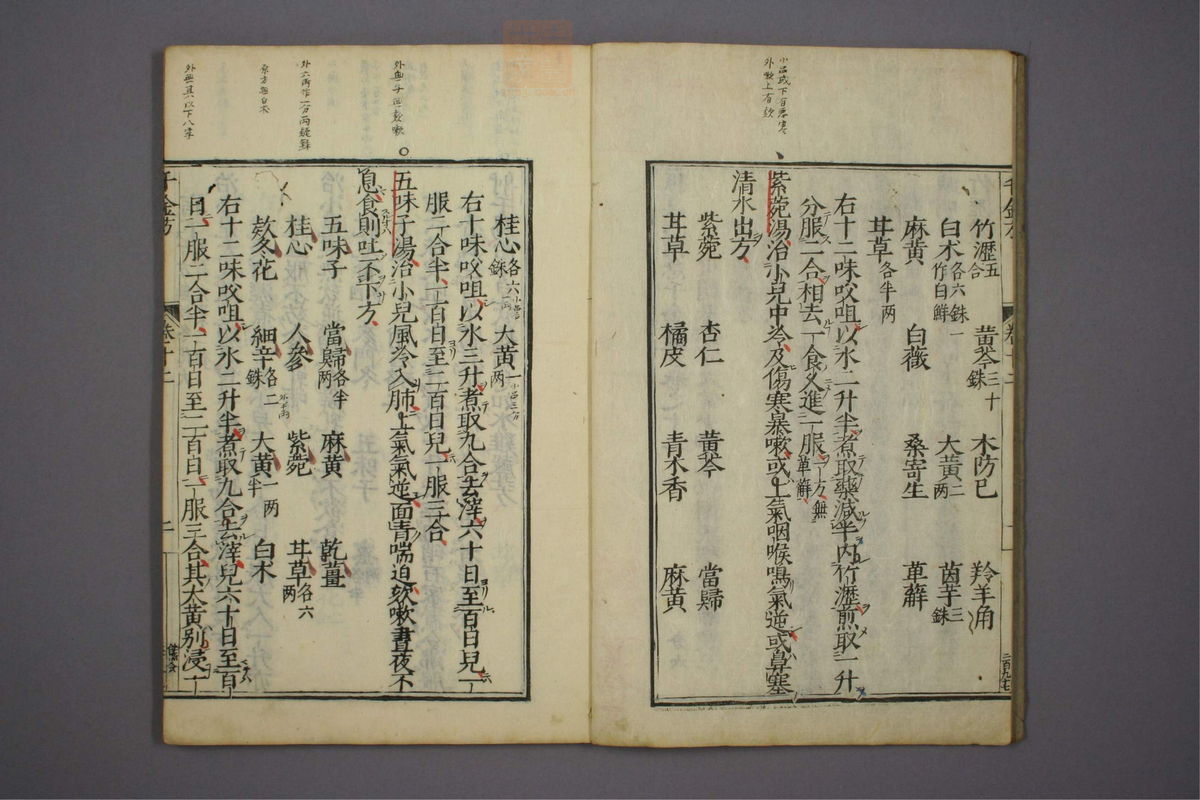 竹瀝五合 黃芩三十銖 木防己 羚羊角
白朮各六銖一作白鮮 大黃二兩 茵芋三銖
麻黃 白薇 桑寄生 萆薢
甘草各半兩
右十二味㕮咀以水二升半煮取藥減半内竹瀝煎取一升
分服二合相去一食久進一服一方無萆薢
紫菀湯治小兒中冷及傷寒暴嗽或上氣咽喉鳴氣逆或鼻塞
清水出方
紫菀 杏仁 黃芩 當歸
甘草 橘皮 青木香 麻黃
桂心各六銖 大黃一兩
右十味㕮咀以水三升煮取九合去滓六十日至百日兒一
服二合半一百日至二百日兒一服三合
五味子湯治小兒風冷入肺上氣氣逆面青喘迫欬嗽晝夜不
息食則吐不下方
五味子 當歸各半兩 麻黃 乾薑
桂心 人參 紫菀 甘草各六兩
欬冬花 細辛各二銖 大黃一兩半 白朮
右十二味㕮咀以水二升半煮取九合去滓兒六十日至百
日一服二合半一百日至二百日一服三合其大黃別浸一
千金方
卷十二
二百九七